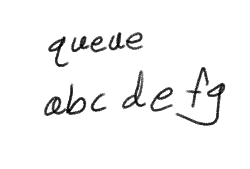 queue
abc de fg